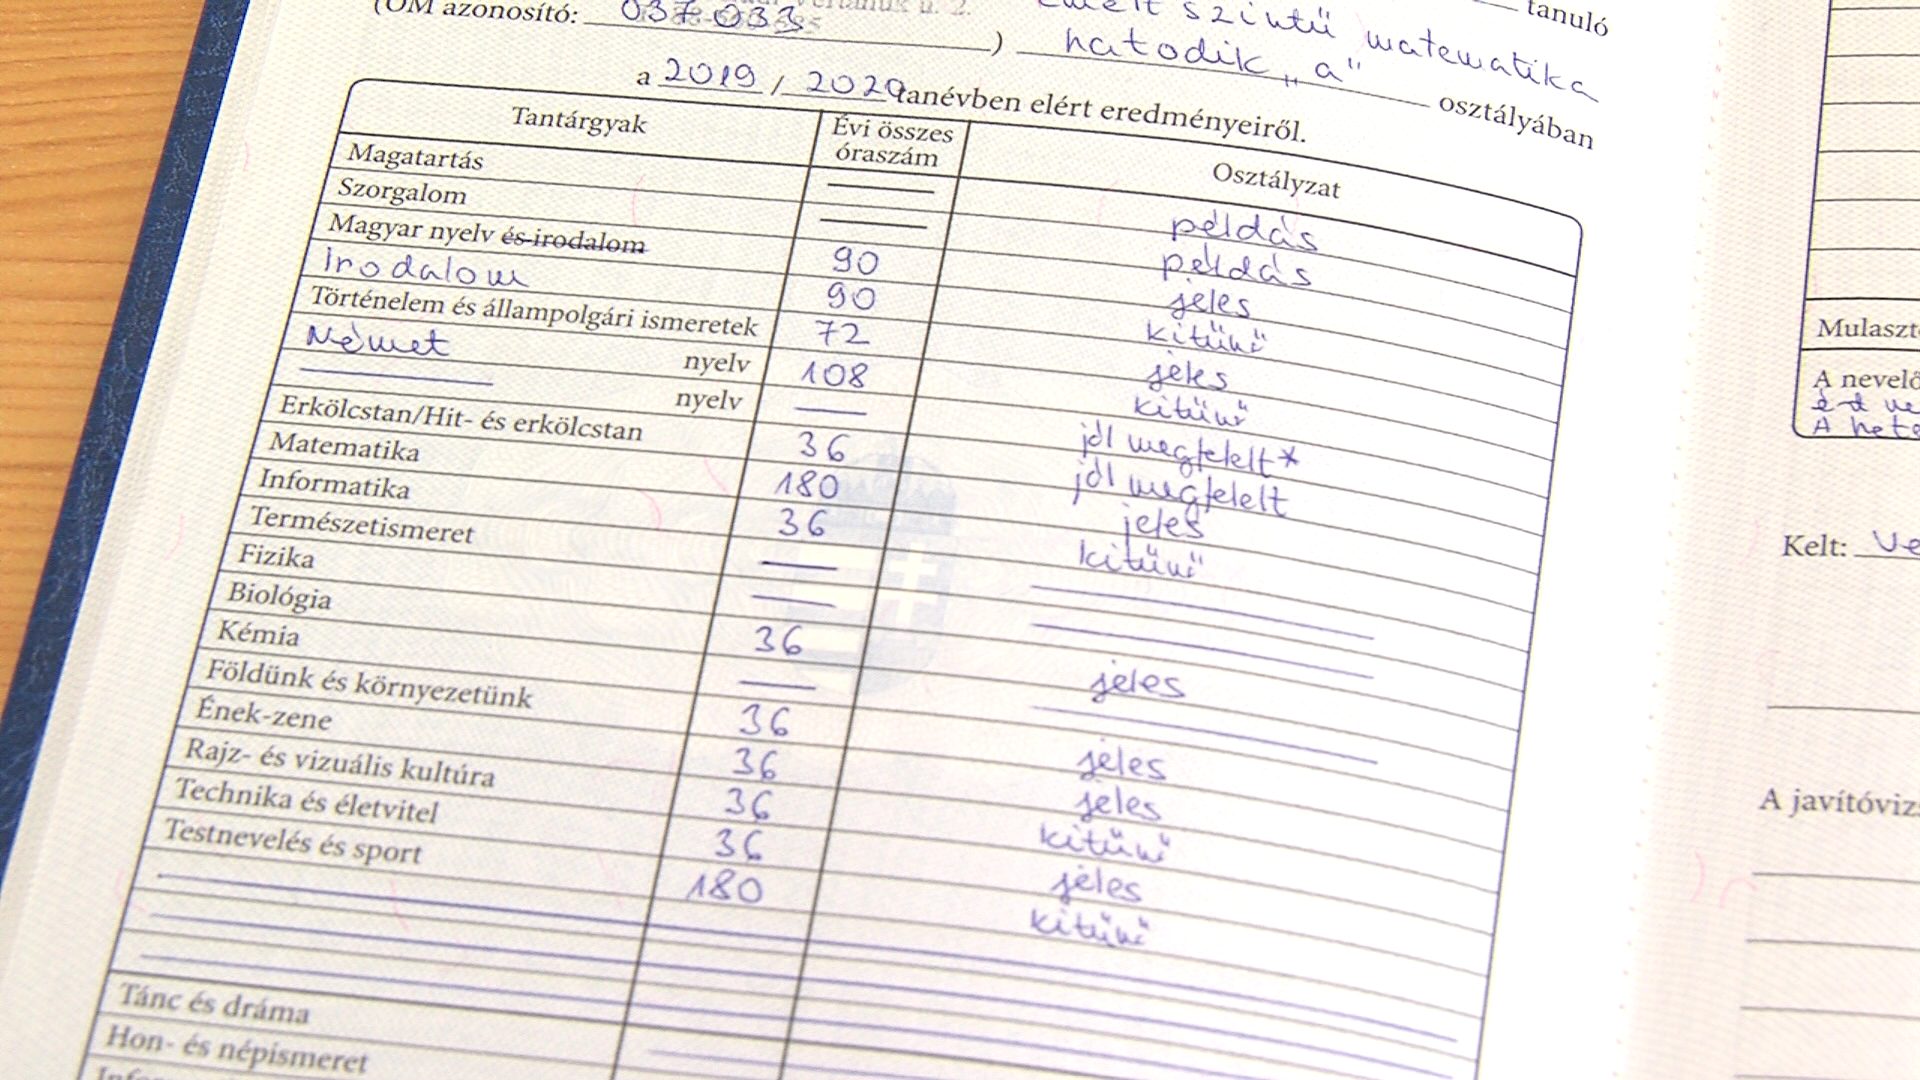 (OM azonosító: 037033) emelt szintű matematika tanuló
hatodik „a" osztályában
a 2019 / 2020 tanévben elért eredményeiről.
Tantárgyak Évi összes óraszám Osztályzat
Magatartás példás
Szorgalom példás
Magyar nyelv és irodalom 90 jeles
Irodalom 90 kitűnő
Történelem és állampolgári ismeretek 72 jeles
Német nyelv 108 kitűnő
nyelv jól megfelelt*
Erkölcstan/Hit- és erkölcstan 36 jól megfelelt
Matematika 180 jeles
Informatika 36 kitűnő
Természetismeret
Fizika
Biológia 36 jeles
Kémia
Földünk és környezetünk 36 jeles
Ének-zene 36 jeles
Rajz- és vizuális kultúra 36 kitűnő
Technika és életvitel 36 jeles
Testnevelés és sport 180 kitűnő
Tánc és dráma
Hon- és népismeret
Mulaszt
A nevelő
A hete
Kelt: Ve
A javítóviz